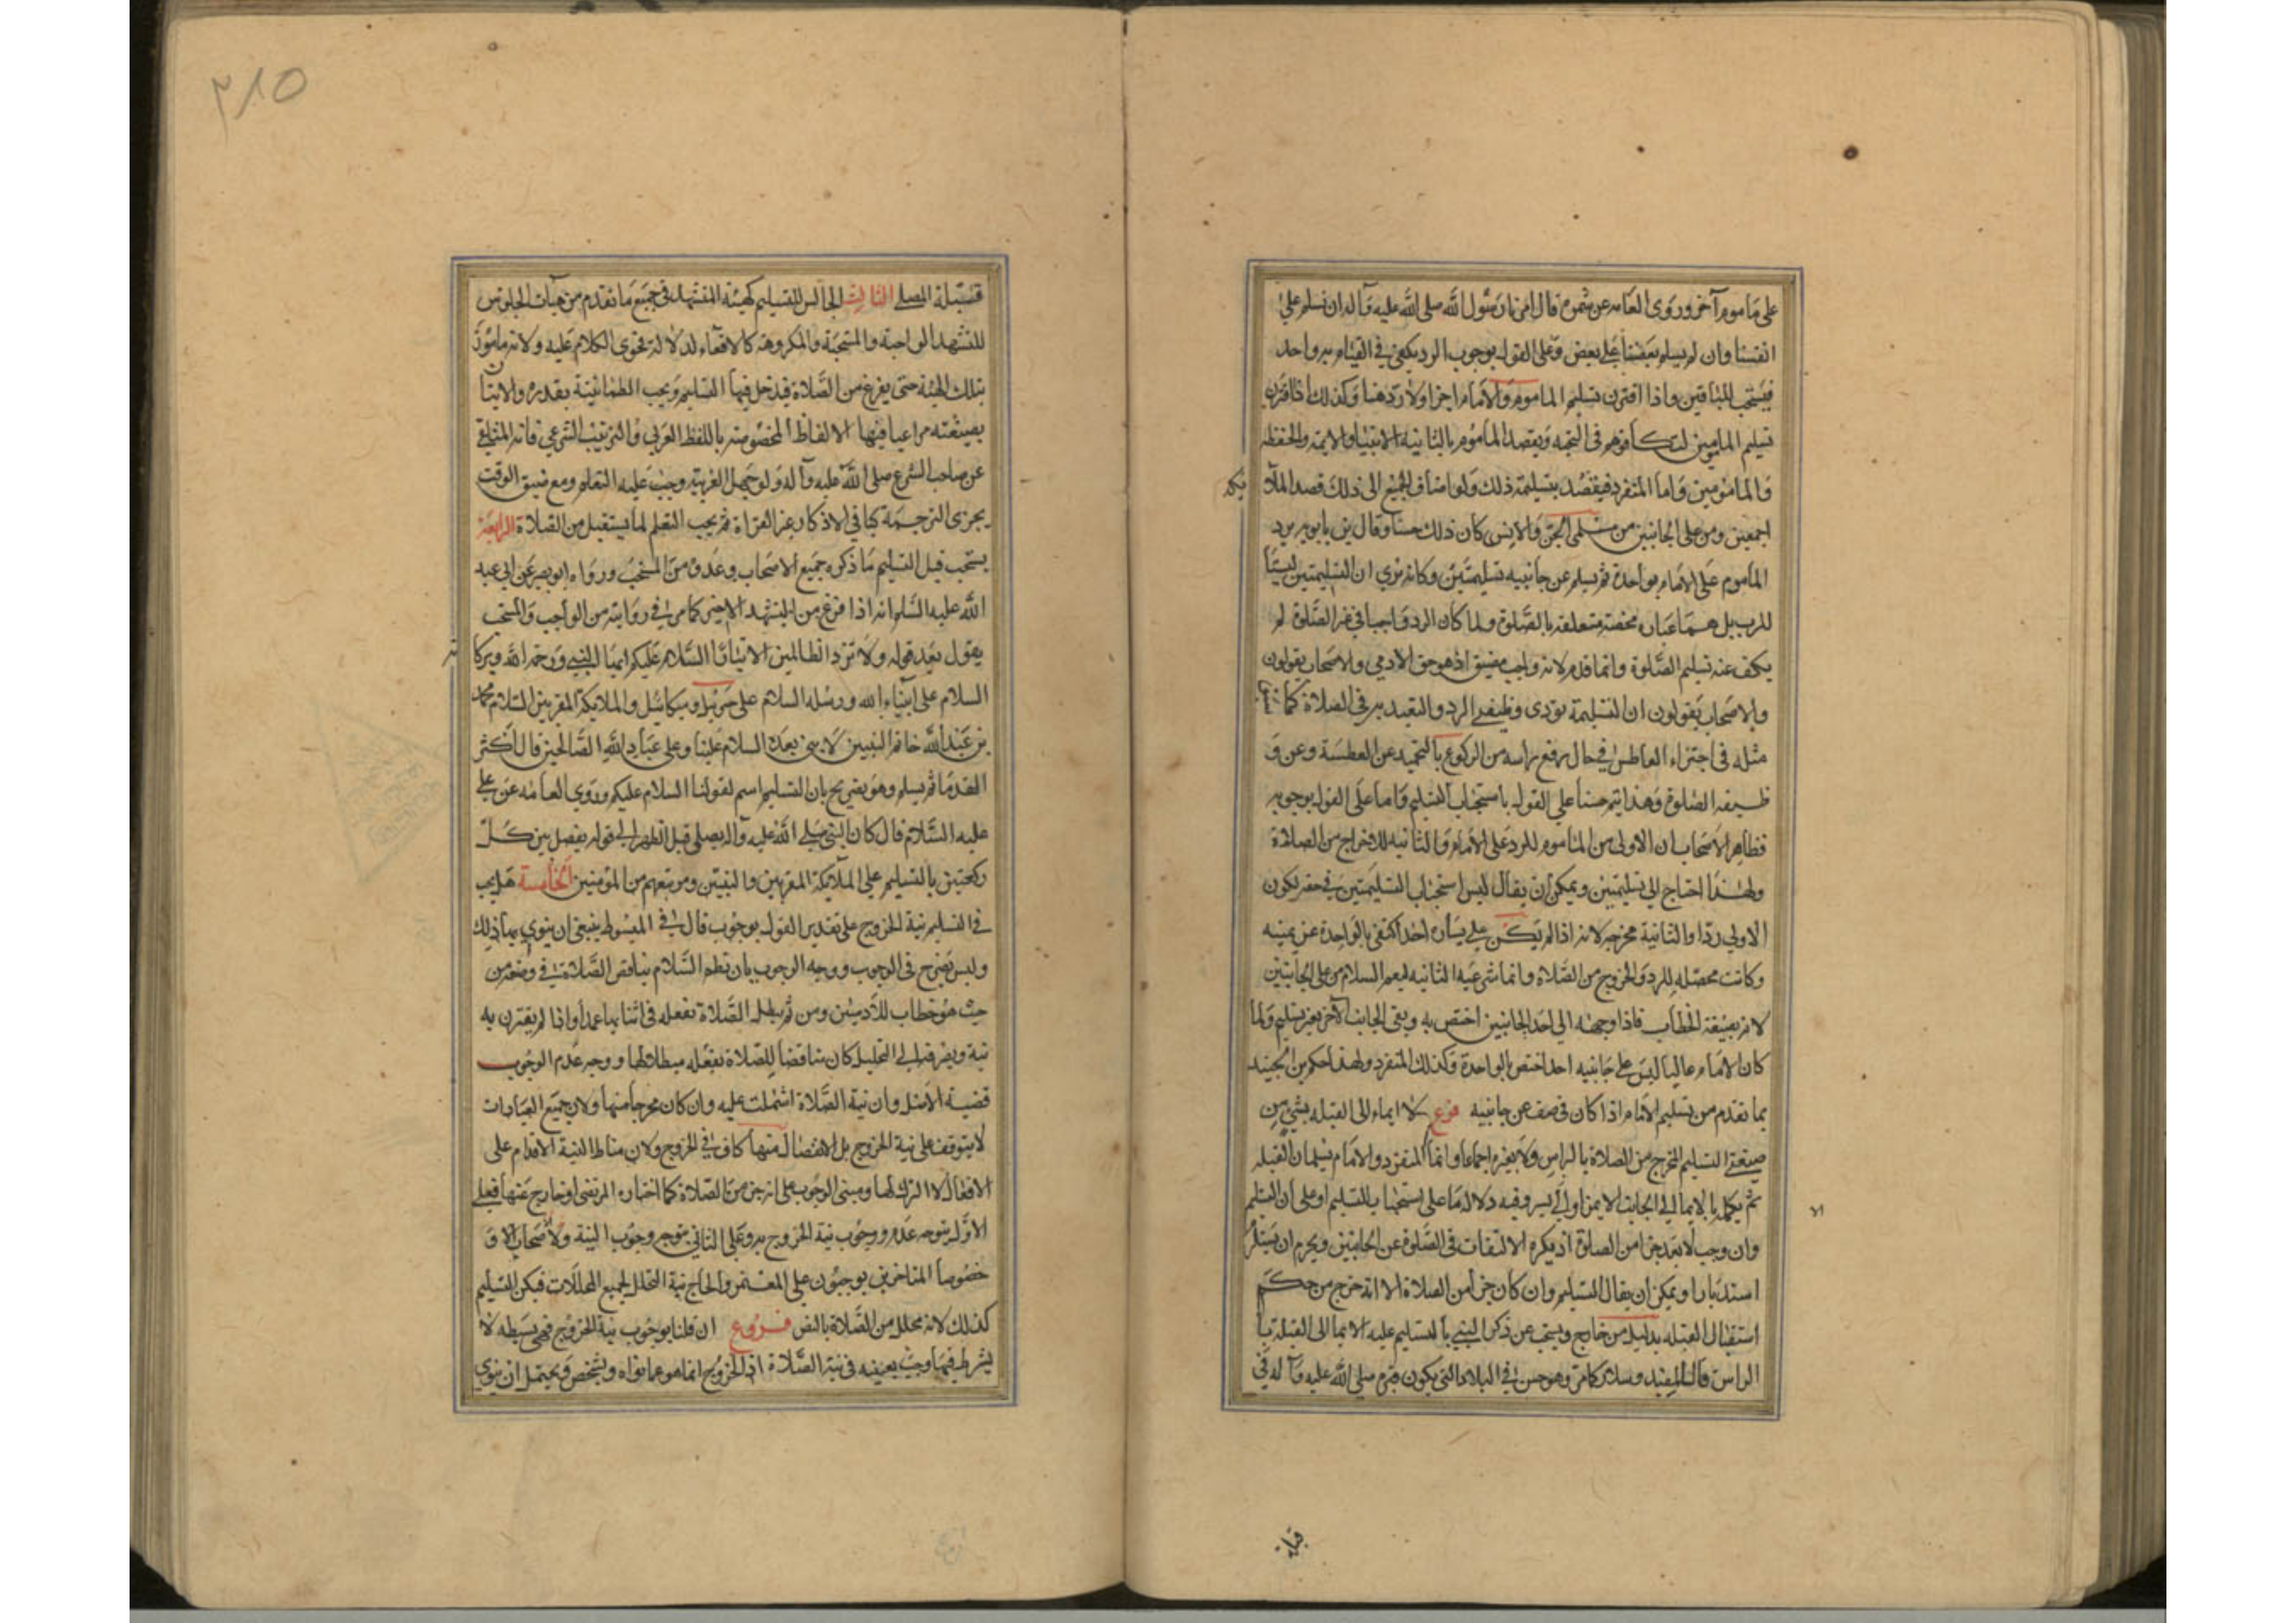 على مأموم آخر وروى العامه عن سمرة قال امرنا رسول الله صلى الله عليه وآله ان نسلم على
انفسنا وان لم يسلم بعضنا على بعض وعلى القول بوجوب الرد يكفي في القيام به واحد
فيستحب للباقين واذا اقترن تسليم الماموم والامام اجزا ولا رد هنا وكذلك اذا اقترن
تسليم المامومين لتكافؤهم في التحية ويقصد الماموم بالثانية الانبيا والائمة والحفظه
والمامومين واما المنفرد فيقصد بتسليمه ذلك ولو اضاف الجميع الى ذلك قصد الملا
يكه
اجمعين ومن على الجانبين من مسلمي الجن والانس كان ذلك حسنا وقال بن بابويه يرد
الماموم على الامام بواحدة ثم يسلم عن جانبيه تسليمتين وكانه يري ان التسليمتين ليستا
للرد بل هما عباره محضة متعلقه بالصلوة ولما كان الرد واجبا في غير الصلوة لم
يكف عنه تسليم الصلوة وانما قدم لانه واجب مضيق اذ هو حق الادمي والاصحاب يقولون
والاصحاب يقولون ان التسليمة تؤدى وظيفتي الرد والتعبد به في الصلاة كما
مثله في اجتزاء العاطس في حال رفع راسه من الركوع بالتحميد عن العطسة وعن و
ظيفه الصلوة وهذا يتم حسنا على القول باستحباب التسليم واما على القول بوجوبه
فظاهر الاصحاب ان الاولى من الماموم للرد على الامام والثانيه للاخراج من الصلاة
ولهذا احتاج الى تسليمتين ويمكن ان يقال ليس استحباب التسليمتين في حقه لكون
الاولي ردا والثانية مخرجه لانه اذا لم يكن على يساره احد اكتفى بالواحدة عن يمينه
وكانت محصله للرد والخروج من الصلاة وانما شرعيه الثانيه ليعم السلام من على الجانبين
لانه بصيغة الخطاب فاذا وجهه الى احد الجانبين اختص به وبقى الجانب الآخر بغير تسليم ولما
كان الامام غالبا ليس على جانبيه احد اختص بالواحدة وكذلك المنفرد ولهذا حكم بن الجنيد
بما تقدم من تسليم الامام اذا كان في صف عن جانبيه فرع لا ايماء الى القبله بشي من
صيغتي التسليم المخرج من الصلاة بالراس ولا بغيره اجماعا وانما المنفرد والامام يسلمان القبله
الا
ثم يكمله بالايما الى الجانب الايمن او الايسر وفيه دلالة ما على استحباب التسليم او على ان التسليم
وان وجب لا يعد جزا من الصلوة اذ يكره الالتفات في الصلوة عن الجانبين ويحرم ان يستلزم
استدبارا ويمكن ان يقال التسليم وان كان جزا من الصلاة الا انه خرج من حكم
استقبال القبله بدليل من خارج ويستحب عن ذكر النبي بالتسليم عليه الايما الى القبلة با
الراس قاله المفيد وسلار كما مر وهو حسن في البلاد التي يكون قبره صلى الله عليه وآله في
قبلة
٢١٥
قبلة المصلى الثالث الجالس للتسليم كهيئة المتشهد في جميع ما تقدم من هيآت الجلوس
للتشهد الواجبة والمستحبة والمكروهة كالاقعاء لدلالة فحوى الكلام عليه ولانه مامور
بتلك الهيئة حتى يفرغ من الصلاة فيدخل فيها التسليم ويجب الطمانينة بقدره والاتيان
بصيغته مراعيا فيها الالفاظ المخصوصه باللفظ العربي والترتيب الشرعي فانه المتلقى
عن صاحب الشرع صلى الله عليه وآله ولو جهل العربية وجب عليه التعلم ومع ضيق الوقت
يجزى الترجمة كباقي الاذكار غير القراة ثم يجب التعلم لما يستقبل من الصلاة الرابعة
يستحب قبل التسليم ما ذكره جميع الاصحاب وعدوه من المستحب ورواه ابو بصير عن ابي عبد
الله عليه السلم انه اذا فرغ من التشهد الاخير كما مر في روايته من الواجب والمستحب
يقول بعد قوله ولا تزد الظالمين الا تبارا السلام عليكم ايها النبي ورحمة الله وبركا
ته
السلام على انبياء الله ورسله السلام على جبريل وميكائيل والملايكة المقربين السلام على محمد
بن عبد الله خاتم النبيين لا نبي بعده السلام علينا وعلى عباد الله الصالحين قال اكثر
القدما ثم يسلم وهو تصريح بان التسليم اسم لقولنا السلام عليكم وروي العامه عن علي
عليه السلام قال كان النبي صلى الله عليه وآله يصلى قبل الظهر الى قوله يفصل بين كل
ركعتين بالتسليم على الملائكة المقربين والنبيين ومن تبعهم من المؤمنين الخامسة هل يجب
في التسليم نية الخروج على تقدير القول بوجوب قال في المبسوط ينبغي ان ينوي بها ذلك
وليس تصريح في الوجوب ووجه الوجوب بان نظم السلام يناقض الصلاة في وضعه من
حيث هو خطاب للآدميين ومن ثم تبطل الصلاة بفعله في اثنائها عمدا واذا لم يقترن به
نية ويصرفه الى التحليل كان مناقضا للصلاة بفعله مبطلا لها ووجه عدم الوجوب
قضية الاصل وان نية الصلاة اشتملت عليه وان كان مخرجا منها ولان جميع العبادات
لا يتوقف على نية الخروج بل الانفصال منها كاف في الخروج ولان مناط النية الاقدام على
الافعال لا الترك لها ومبنى الوجوب على انه جزء من الصلاة كما اختاره المرتضى او خارج عنها فعلى
الاول يتوجه عدم وجوب نية الخروج به وعلى الثاني يتوجه وجوب النية والاصحاب
خصوصا المتاخرين يوجبون على المعتمر والحاج نية التحلل لجميع المحللات فيكن التسليم
كذلك لانه محلل من الصلاة بالنص فروع ان قلنا بوجوب نية الخروج فهي بسيطه لا
يشترط فيها وجب تعيينه في نية الصلاة اذ الخروج انما هو عما نواه وشخص ويحتمل ان ينوي